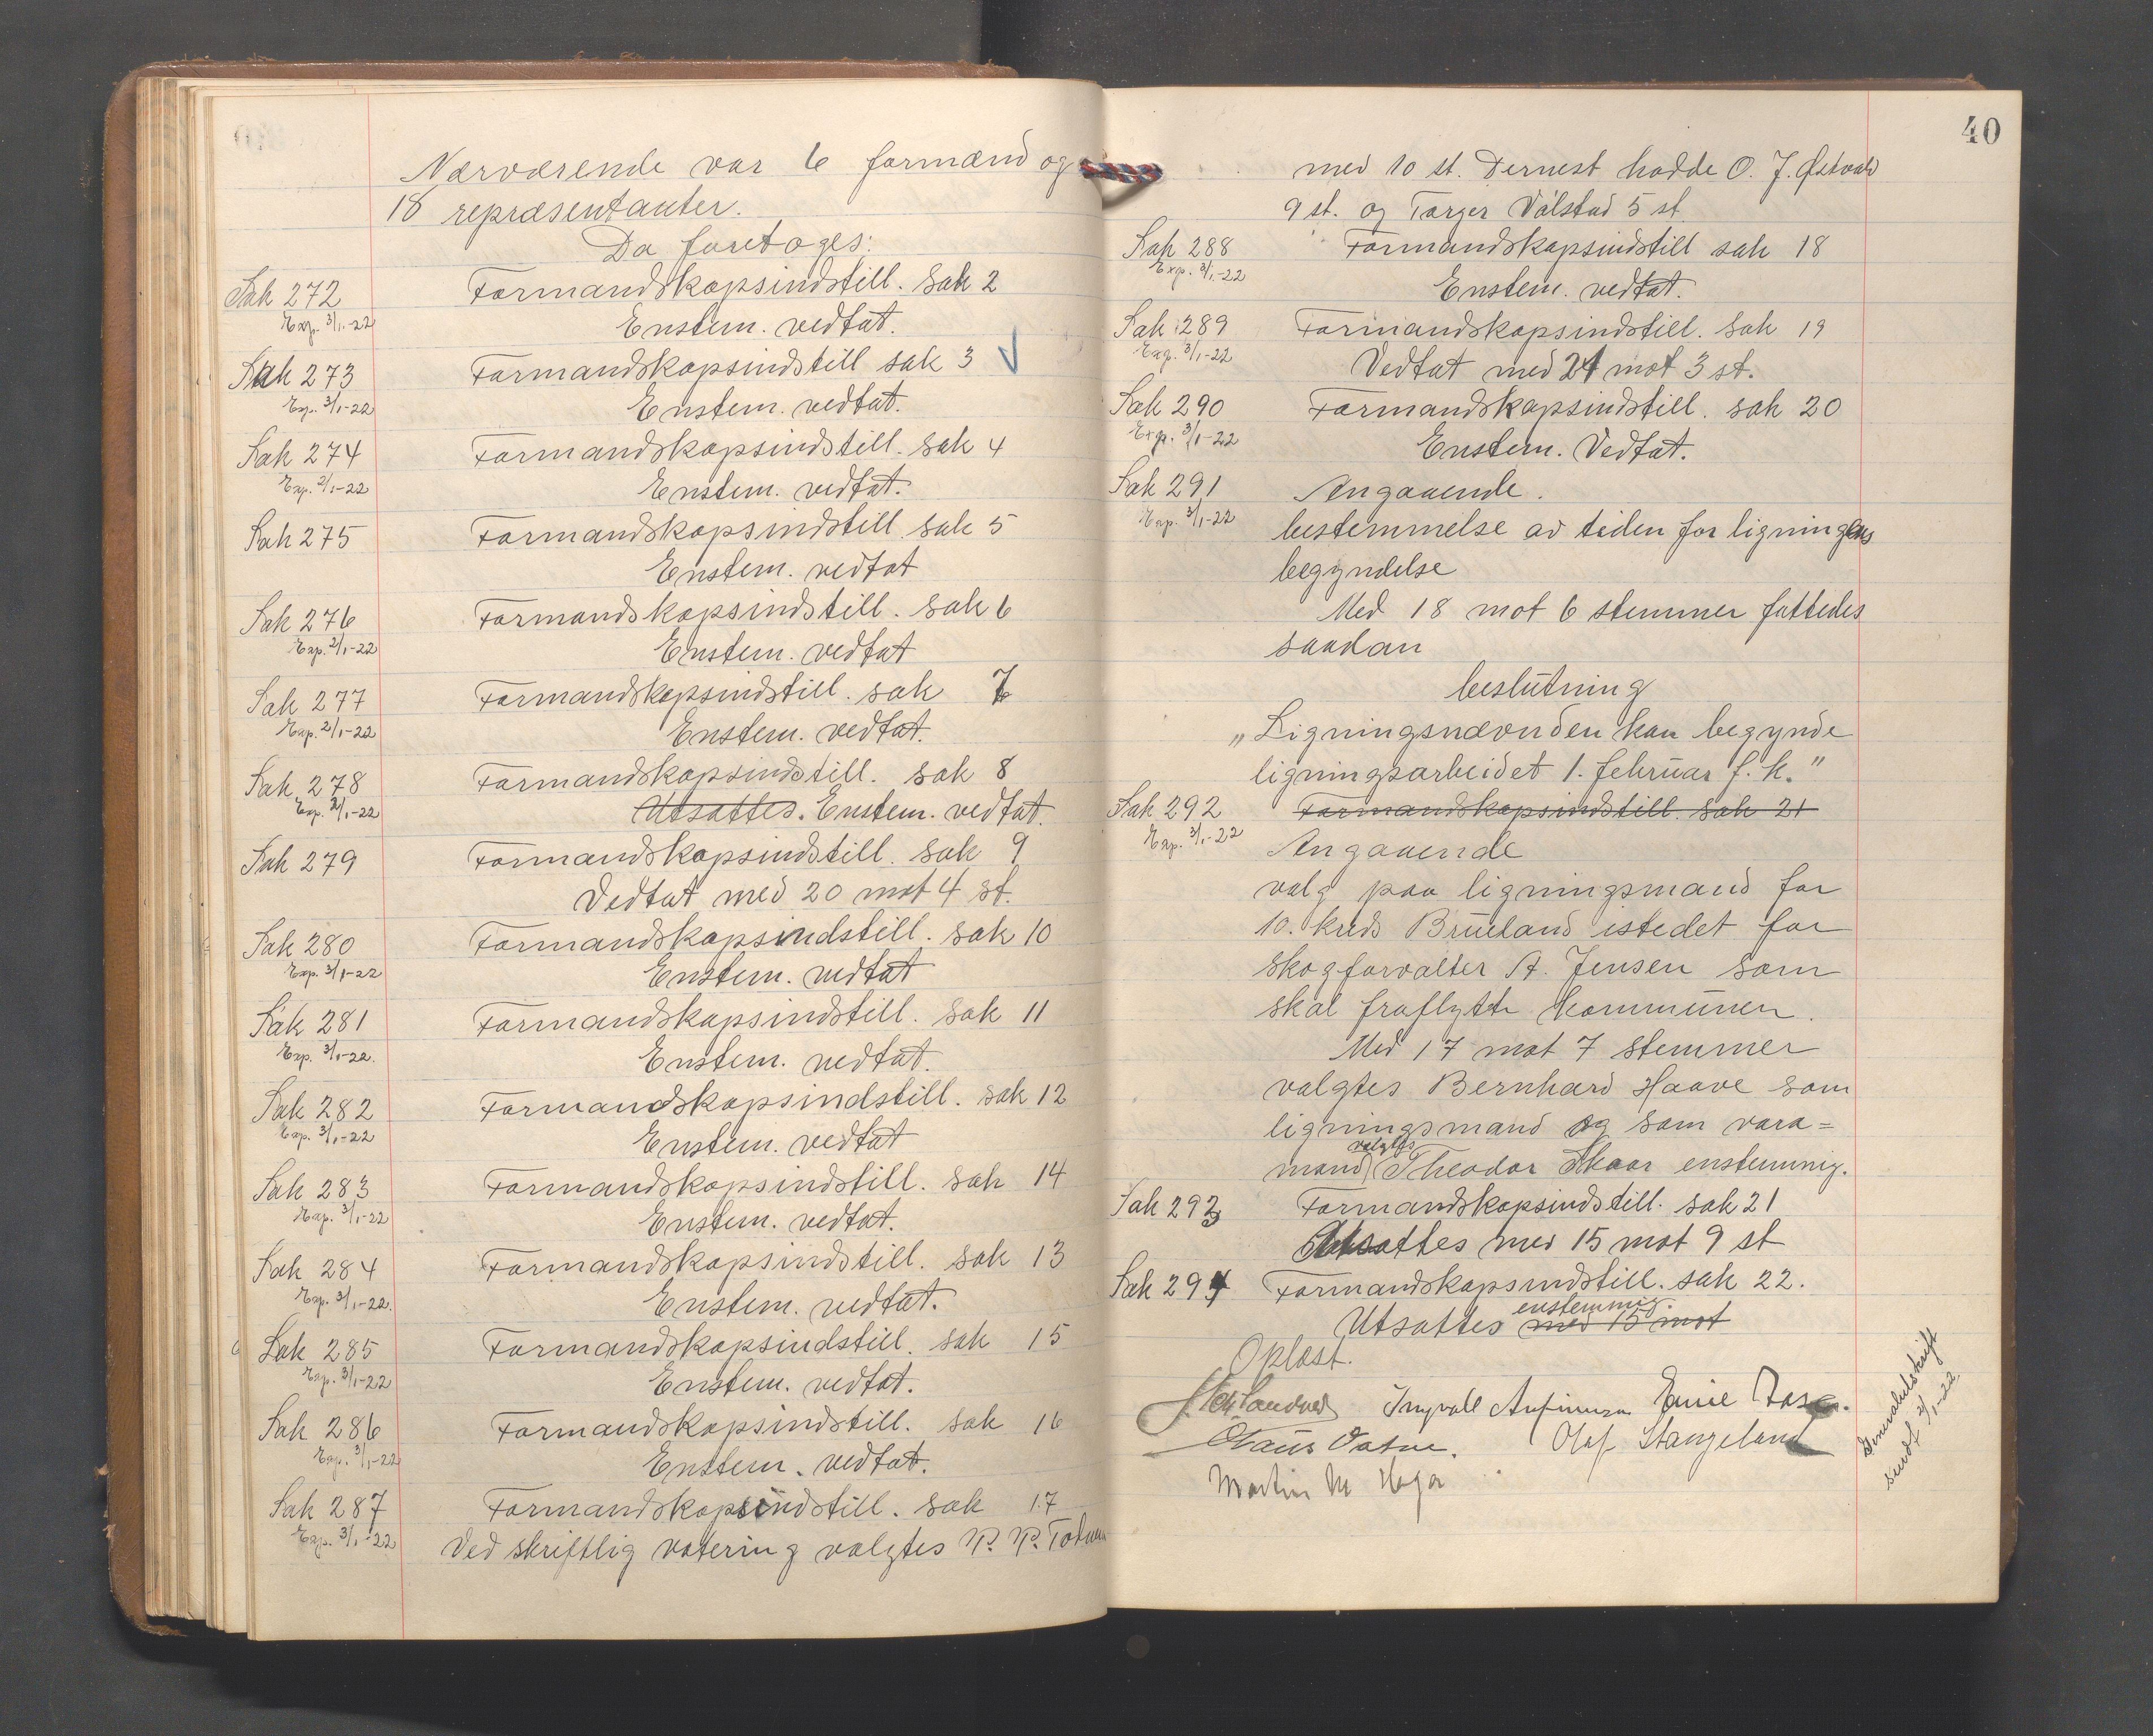 Nærværende var 6 formænd og
18 repræsentanter.
Da foretoges:
Sak 272 Formandskapsindstill. sak 2
Exp. 3/1-22 Enstem. vedtat.
Sak 273 Formandskapsindstill sak 3
Exp. 3/1-22 Enstem. vedtat.
Sak 274 Formandskapsindstill. sak 4
Exp. 2/1-22 Enstem. vedtat.
Sak 275 Formandskapsindstill sak 5
Enstem. vedtat
Sak 276 Formandskapsindstill. sak 6
Exp. 2/1-22 Enstem. vedtat
Sak 277 Formandskapsindstill. sak 7
Exp. 2/1-22 Enstem. vedtat.
Sak 278 Formandskapsindstill. sak 8
Exp. 2/1-22 Utsattes. Enstem. vedtat.
Sak 279 Formandskapsindstill. sak 9
Vedtat med 20 mot 4 st.
Sak 280 Formandskapsindstill. sak 10
Exp. 3/1-22 Enstem. vedtat
Sak 281 Formandskapsindstill. sak 11
Exp. 3/1-22. Enstem. vedtat.
Sak 282 Formandskapsindstill. sak 12
Exp. 3/1-22 Enstem. vedtat
Sak 283 Formandskapsindstill. sak 14
Exp. 3/1-22 Enstem. vedtat.
Sak 284 Formandskapsindstill. sak 13
Exp. 3/1-22. Enstem. vedtat.
Sak 285 Formandskapsindstill. sak 15
Exp. 3/1-22 Enstem. vedtat.
Sak 286 Formandskapsindstill. sak 16
Exp. 3/1-22 Enstem. vedtat.
Sak 287 Formandskapsindstill. sak 17
Exp. 3/1-22 Ved skriftlig votering valgtes P. P.
40
med 10 st. Dernest hadde O. J. Østvold
9 st. og Torger Vålstad 5 st.
Sak 288 Formandskapsindstill sak 18
Exp. 3/1-22 Enstem. vedtat.
Sak 289 Formandskapsindstill. sak 19
Exp. 3/1-22 Vedtat med 21 mot 3 st.
Sak 290 Formandskapsindstill. sak 20
Exp. 3/1-22 Enstem. Vedtat.
Sak 291 Angaaende.
Exp. 3/1-22 bestemmelse av tiden for ligningens
begyndelse
Med 18 mot 6 stemmer fattedes
saadan
beslutning
„Ligningsnævnden kan begynde
ligningsarbeidet 1. februar f. k."
Sak 292 Formandskapsindstill. sak 21
Exp. 3/1-22 Angaaende
valg paa ligningsmand for
10. kreds Brueland istedet for
skogforvalter A. Jensen som
skal fraflytte kommunen.
Med 17 mot 7 stemmer
valgtes Bernhard Haave som
ligningsmand og som vara=
mand valgtes Theodor Skaar enstemmig.
Sak 293 Formandskapsindstill. sak 21
Utsattes med 15 mot 9 st
Sak 294 Formandskapsindstill. sak 22.
Utsattes med 15 mot enstemmig.
Oplæst.
Ingvall Emil
Olaus Vatne. Olaf Stangeland
Martin M
Generalutskrift
sendt 3/1-22